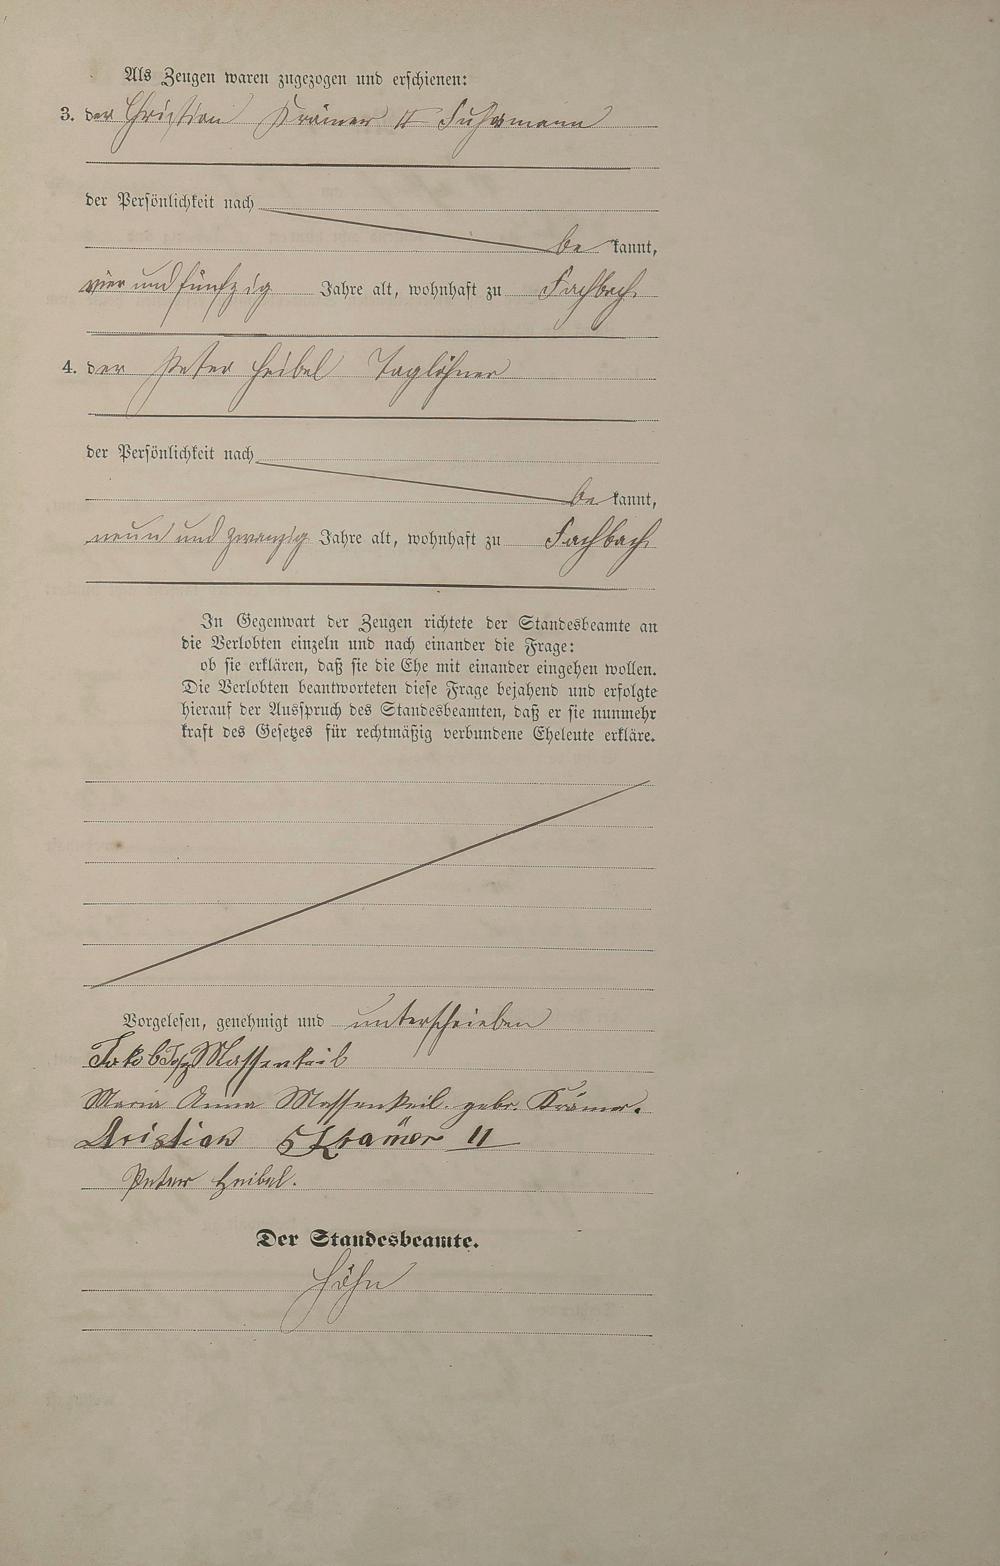 Als Zeugen waren zugezogen und erschienen:
3. der Christian Krämer II Fuhrmann
der Persönlichkeit nach
be kannt,
vier und fünfzig Jahre alt, wohnhaft zu Fachbach
4. der Peter Heibel Taglöhner
der Persönlichkeit nach
be kannt,
neun und zwanzig Jahre alt, wohnhaft zu Fachbach
In Gegenwart der Zeugen richtete der Standesbeamte an
die Verlobten einzeln und nach einander die Frage:
ob sie erklären, daß sie die Ehe mit einander eingehen wollen.
Die Verlobten beantworteten diese Frage bejahend und erfolgte
hierauf der Ausspruch des Standesbeamten, daß er sie nunmehr
kraft des Gesetzes für rechtmäßig verbundene Eheleute erkläre.
Vorgelesen, genehmigt und unterschrieben
Jakob Massenkeil
Maria Anna Massenkeil gebr. Krämer.
Kramer II
Peter Heibel.
Der Standesbeamte.
Höhn